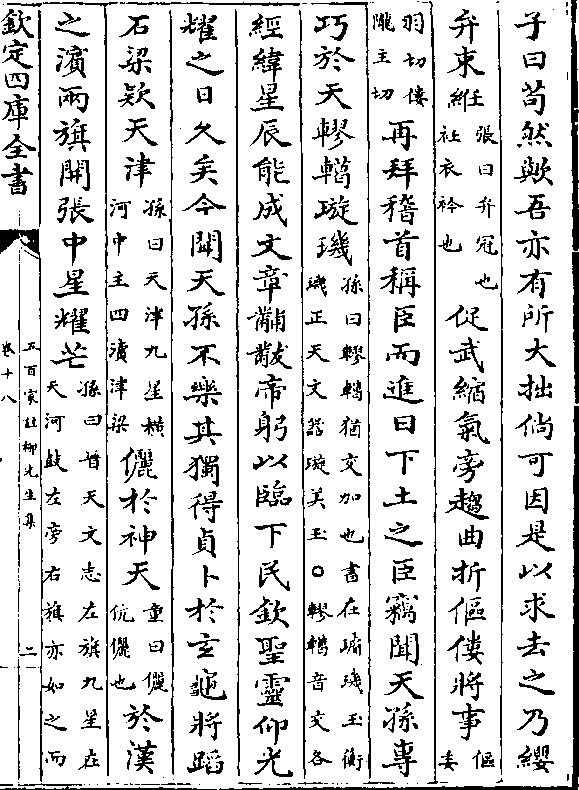 子曰苟然歟吾亦有所大拙倘可因是以求去之乃纓
弁束衽張曰弁冠也衽衣衿也促武縮氣旁趨曲折傴僂將事傴委
羽切僂隴主切再拜稽首稱臣而進曰下土之臣竊聞天孫專
巧於天轇轕璇璣孫曰轇轕猶交加也書在璿璣玉衡璣正天文器璇美玉○轇轕音交各
經緯星辰能成文章黼黻帝躬以臨下民欽聖靈仰光
耀之日久矣今聞天孫不樂其獨得貞卜於玄龜將蹈
石梁欵天津孫曰天津九星橫河中主四瀆津梁儷於神夫童曰儷伉儷也於漢
之濱兩旗開張中星耀芒孫曰晉天文志左旗九星在天河鼓左旁右旗亦如之而
欽定四庫全書
五百家註柳先生集
卷十八
二